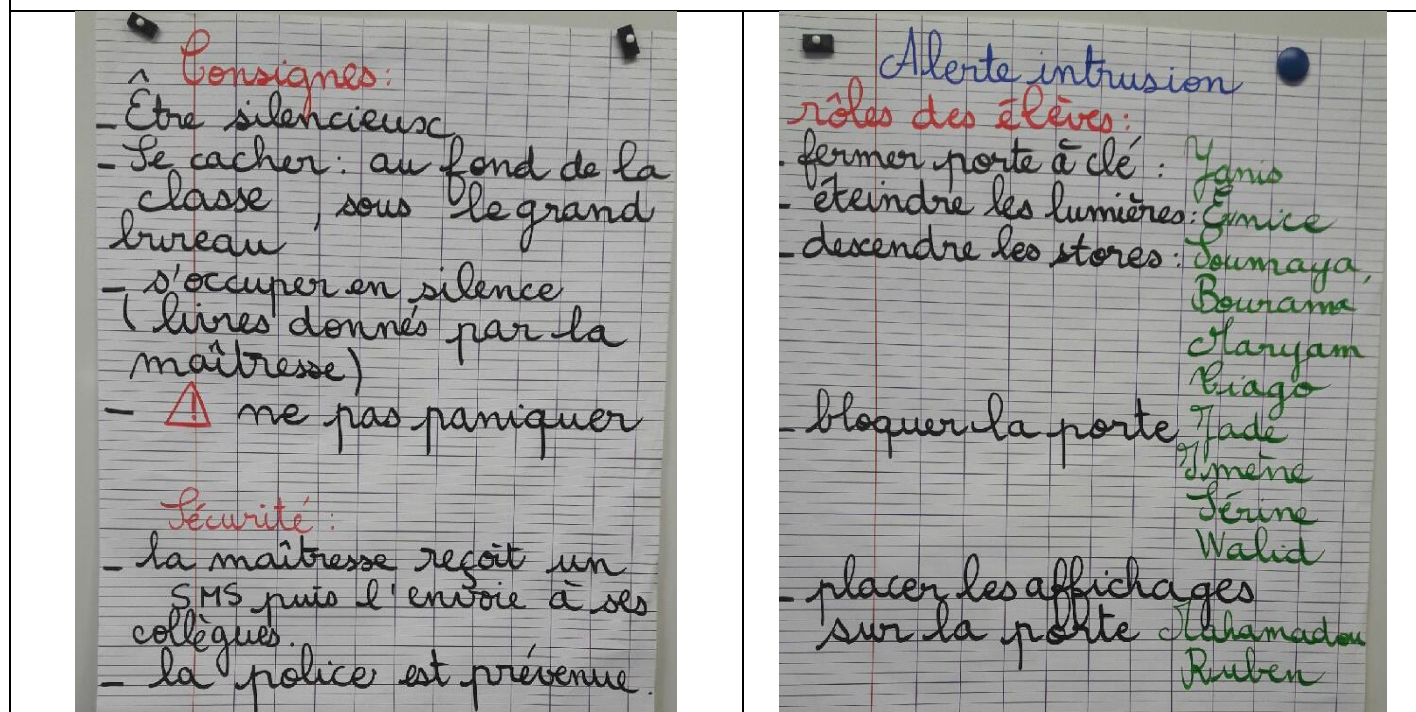 Consignes:
- Être silencieux
- Se cacher: au fond de la
classe, sous le grand
bureau
- s'occuper en silence
(livres donnés par la
maîtresse)
- ⚠ ne pas paniquer
Sécurité:
- la maîtresse reçoit un
SMS puis l'envoie à ses
collègues.
- la police est prévenue.
Alerte intrusion
rôles des élèves:
- fermer porte à clé: Yanis
- éteindre les lumières: Eunice
- descendre les stores: Soumaya,
Bourama
Maryam
Tiago
- bloquer la porte Jade
Imene
Sérine
Walid
- placer les affichages
sur la porte Mahamadou
Ruben